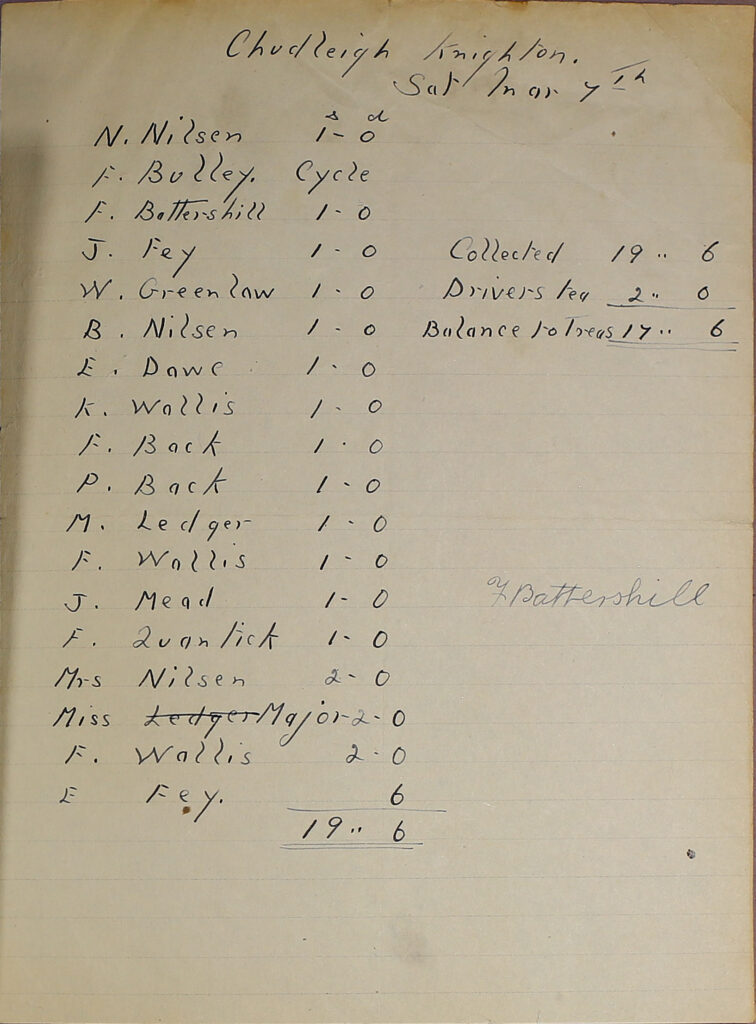 Chudleigh Knighton.
Sat Mar 7th
s d
N. Nilsen 1 - 0
F. Bulley. Cycle
F. Battershill 1 - 0
J. Fey 1 - 0 Collected 19 .. 6
W. Greenlaw 1 - 0 Drivers tea 2 .. 0
B. Nilsen 1 - 0 Balance to Treas 17 .. 6
E. Dawe 1 - 0
K. Wallis 1 - 0
F. Back 1 - 0
P. Back 1 - 0
M. Ledger 1 - 0
F. Wallis 1 - 0
J. Mead 1 - 0 F Battershill
F. Quantick 1 - 0
Mrs Nilsen 2 - 0
Miss Ledger Major 2 - 0
F. Wallis 2 - 0
E Fey. 6
19 .. 6